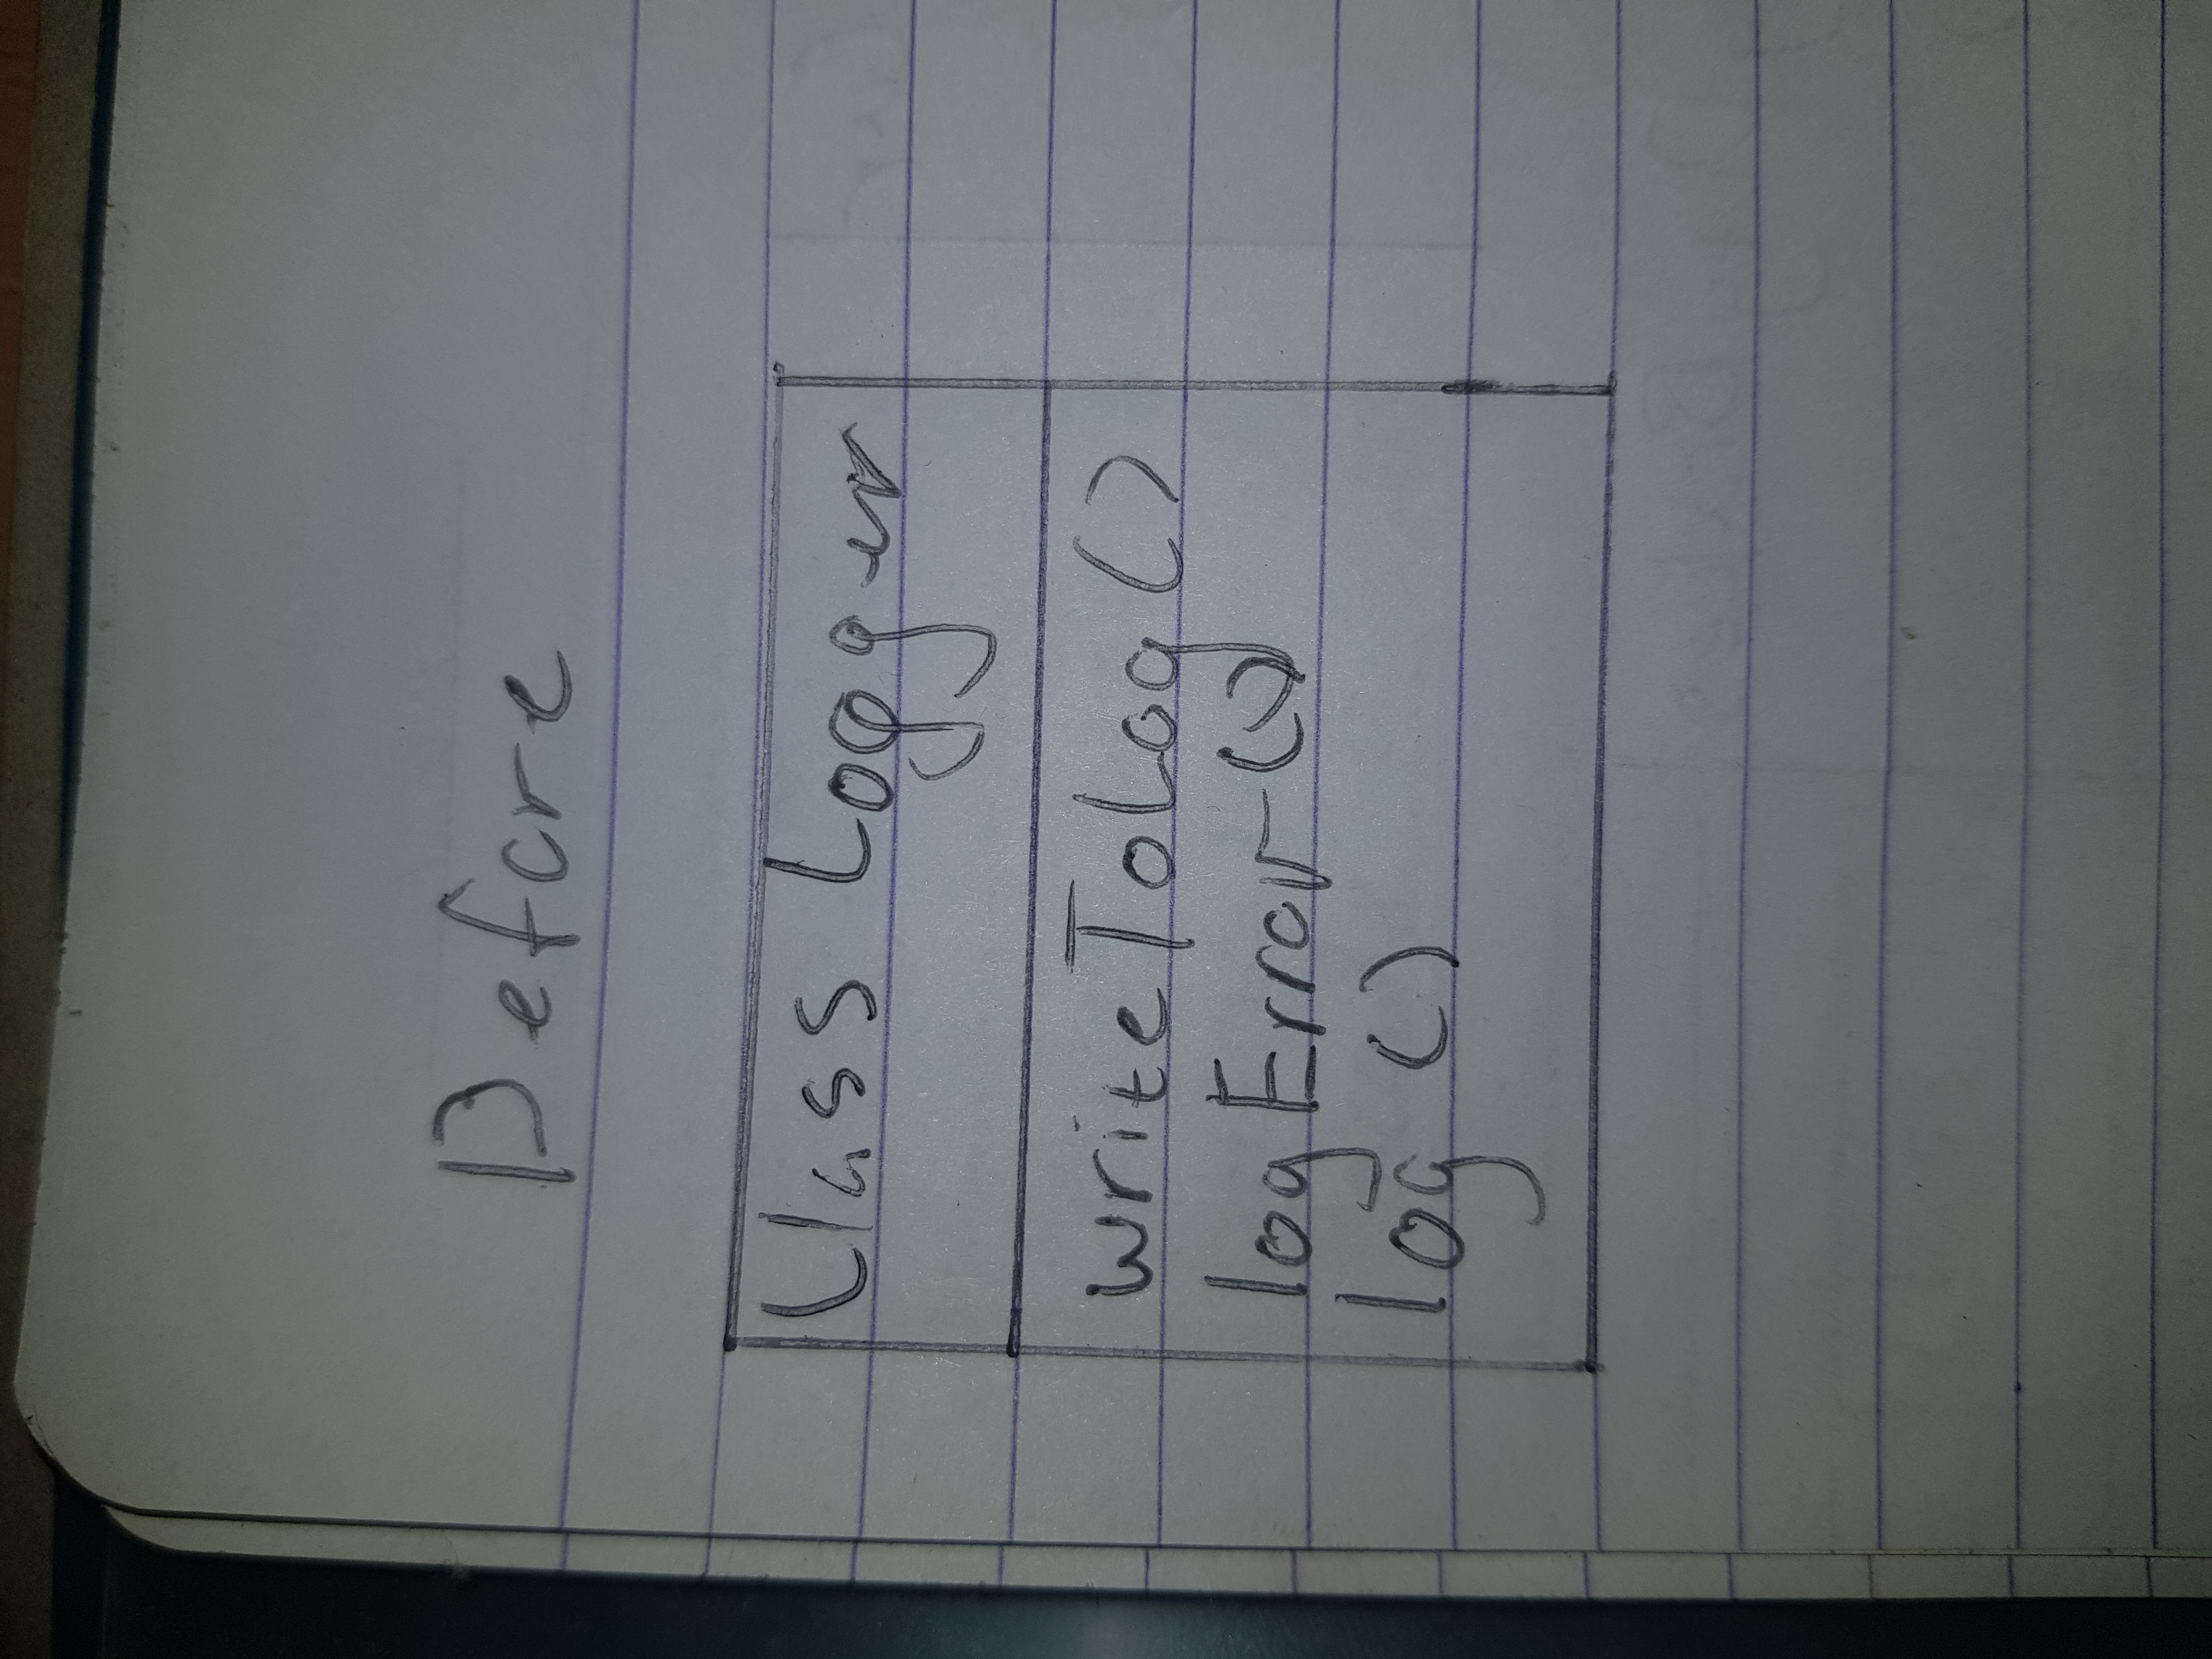 Before
Class Logger
writeToLog()
logError()
log()